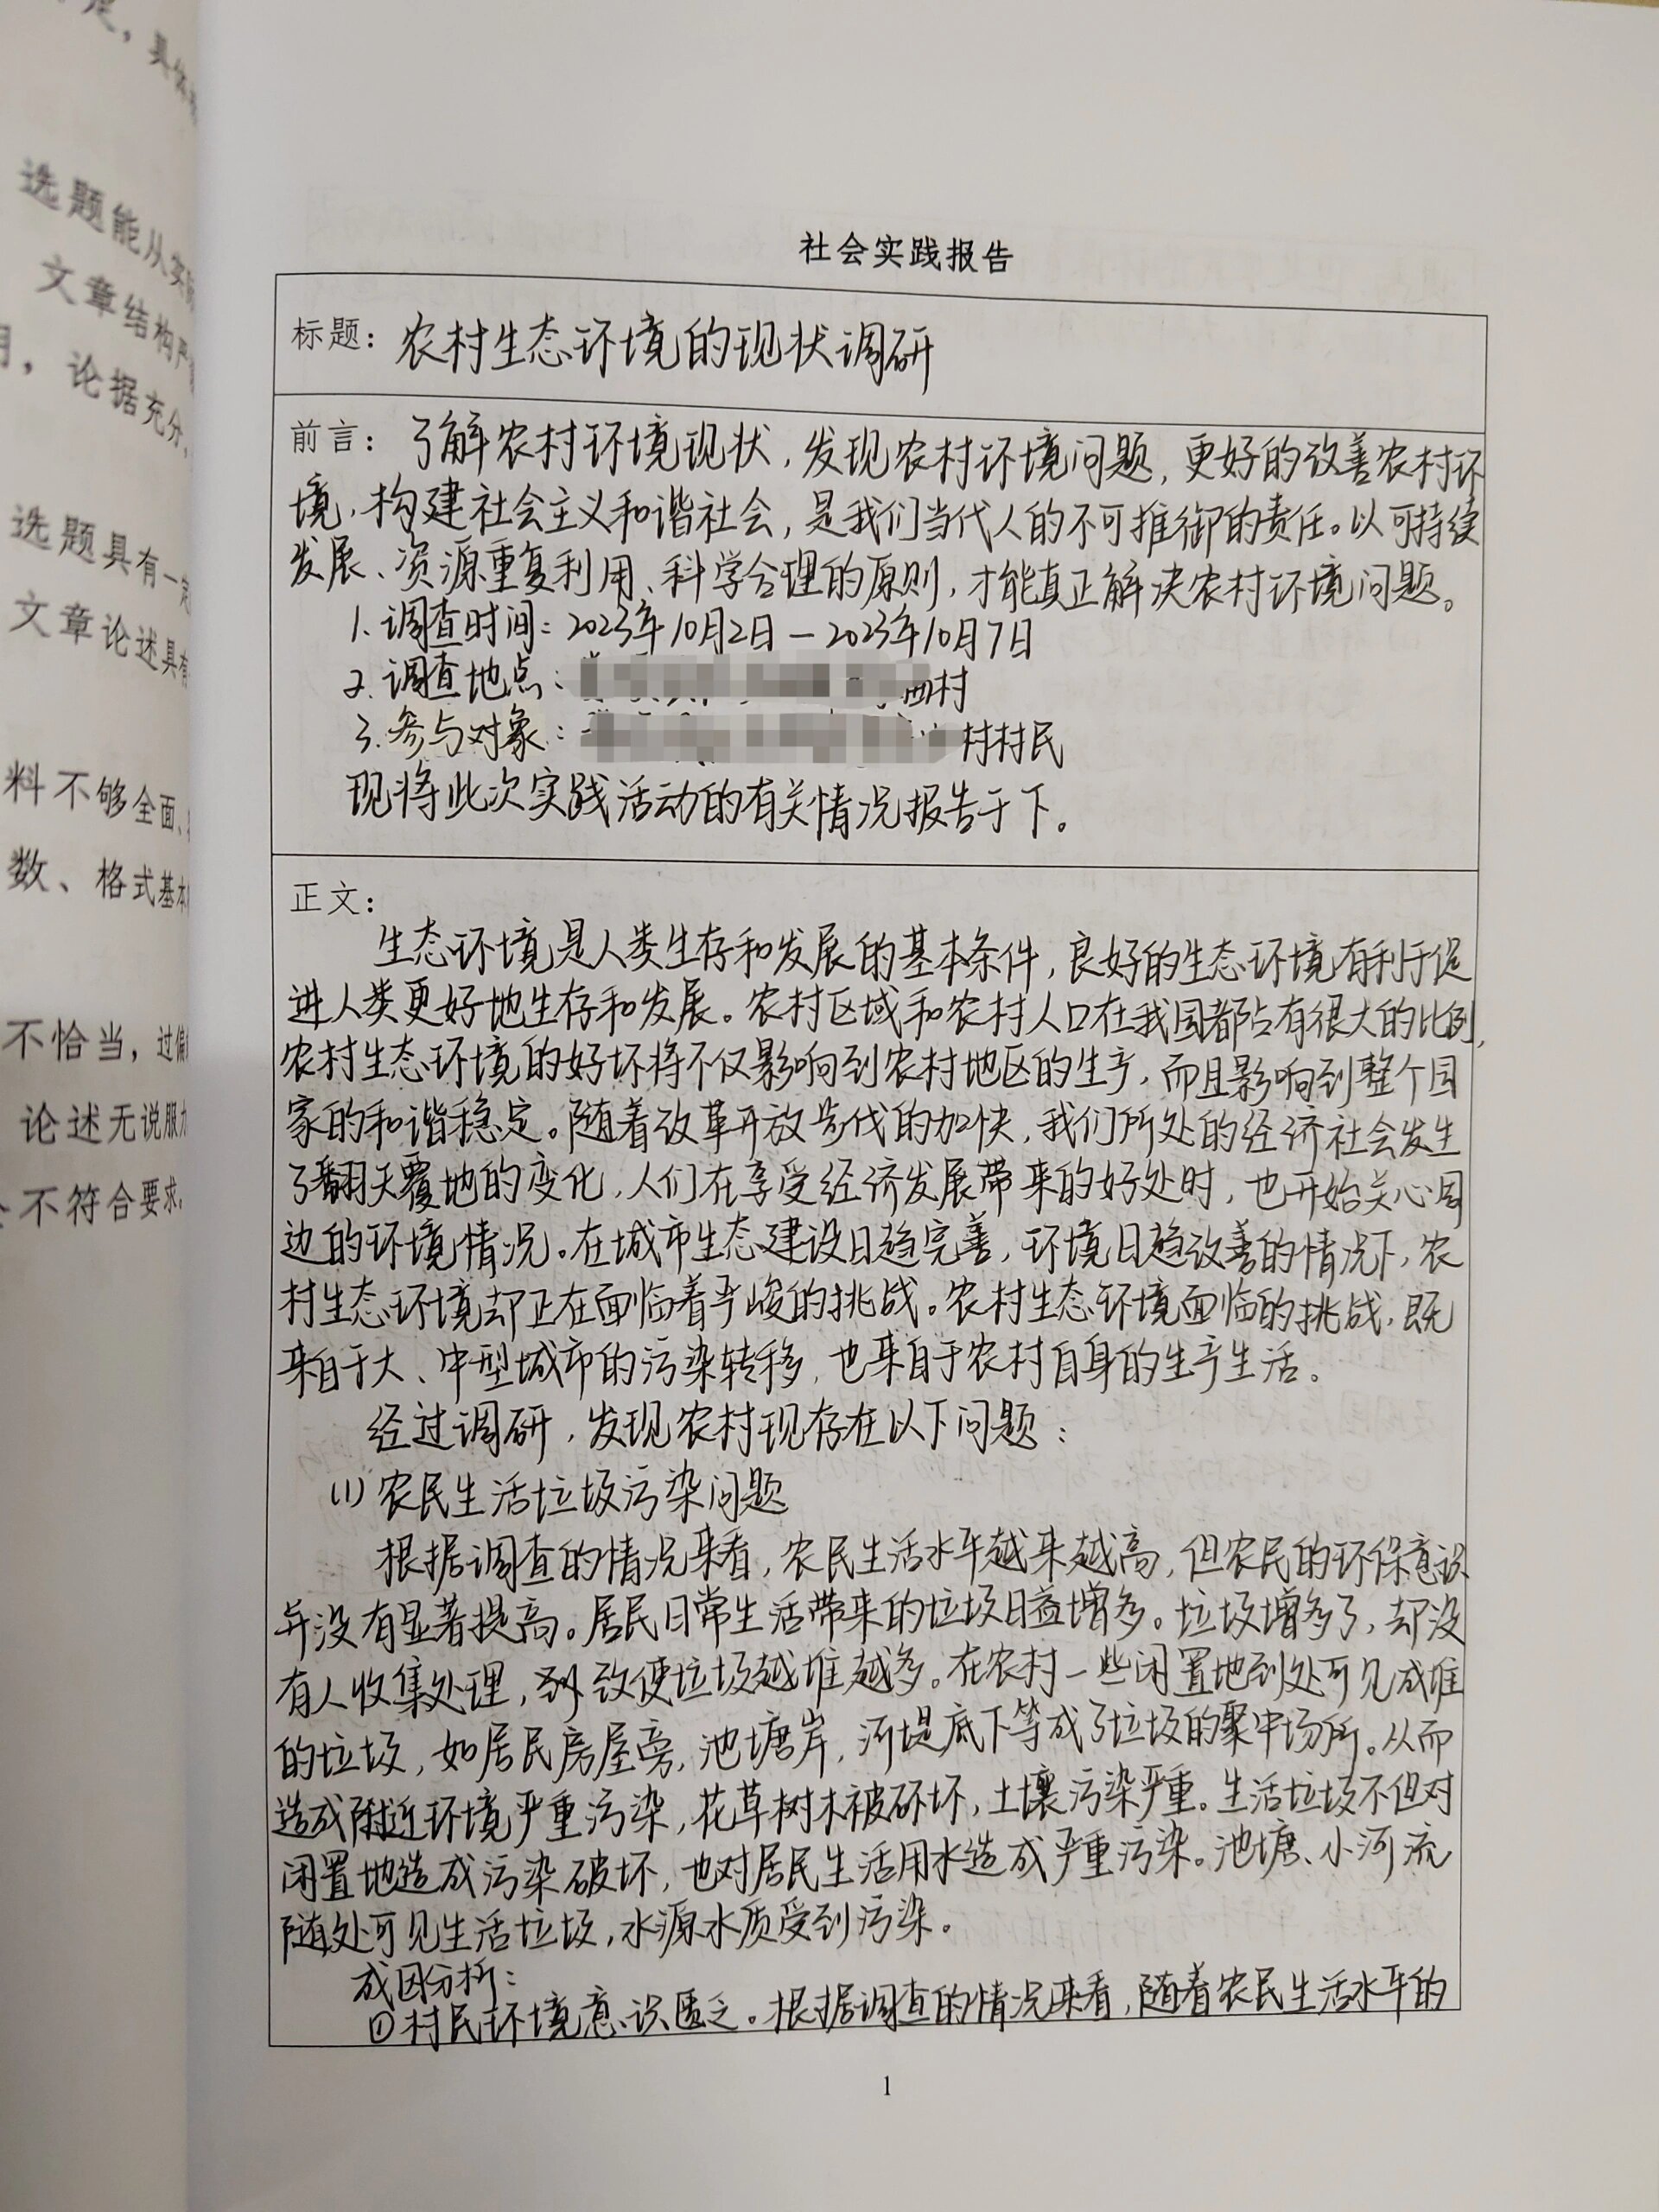 选题能从实
文章结构严
，论据充分，
选题具有一定
文章论述具有
料不够全面、
数、格式基本
不恰当，过偏
论述无说服力
不符合要求。
社会实践报告
标题：农村生态环境的现状调研
前言：了解农村环境现状，发现农村环境问题，更好的改善农村环
境，构建社会主义和谐社会，是我们当代人的不可推御的责任。以可持续
发展、资源重复利用、科学合理的原则，才能真正解决农村环境问题。
1.调查时间：2023年10月2日—2023年10月7日
2.调查地点：村
3.参与对象：村村民
现将此次实践活动的有关情况报告于下。
正文：
生态环境是人类生存和发展的基本条件，良好的生态环境有利于促
进人类更好地生存和发展。农村区域和农村人口在我国都占有很大的比例，
农村生态环境的好坏将不仅影响到农村地区的生产，而且影响到整个国
家的和谐稳定。随着改革开放步伐的加快，我们所处的经济社会发生
了翻天覆地的变化，人们在享受经济发展带来的好处时，也开始关心周
边的环境情况。在城市生态建设日趋完善，环境日趋改善的情况下，农
村生态环境却正在面临着严峻的挑战。农村生态环境面临的挑战，既
来自于大、中型城市的污染转移，也来自于农村自身的生产生活。
经过调研，发现农村现存在以下问题：
(1)农民生活垃圾污染问题
根据调查的情况来看，农民生活水平越来越高，但农民的环保意识
并没有显著提高。居民日常生活带来的垃圾日益增多。垃圾增多了，却没
有人收集处理，致使垃圾越堆越多。在农村一些闲置地到处可见成堆
的垃圾，如居民房屋旁，池塘岸，河堤底下等成了垃圾的聚中场所。从而
造成附近环境严重污染，花草树木被破坏，土壤污染严重。生活垃圾不但对
闲置地造成污染破坏，也对居民生活用水造成严重污染。池塘、小河流
随处可见生活垃圾，水源水质受到污染。
成因分析：
①村民环境意识匮乏。根据调查的情况来看，随着农民生活水平的
1